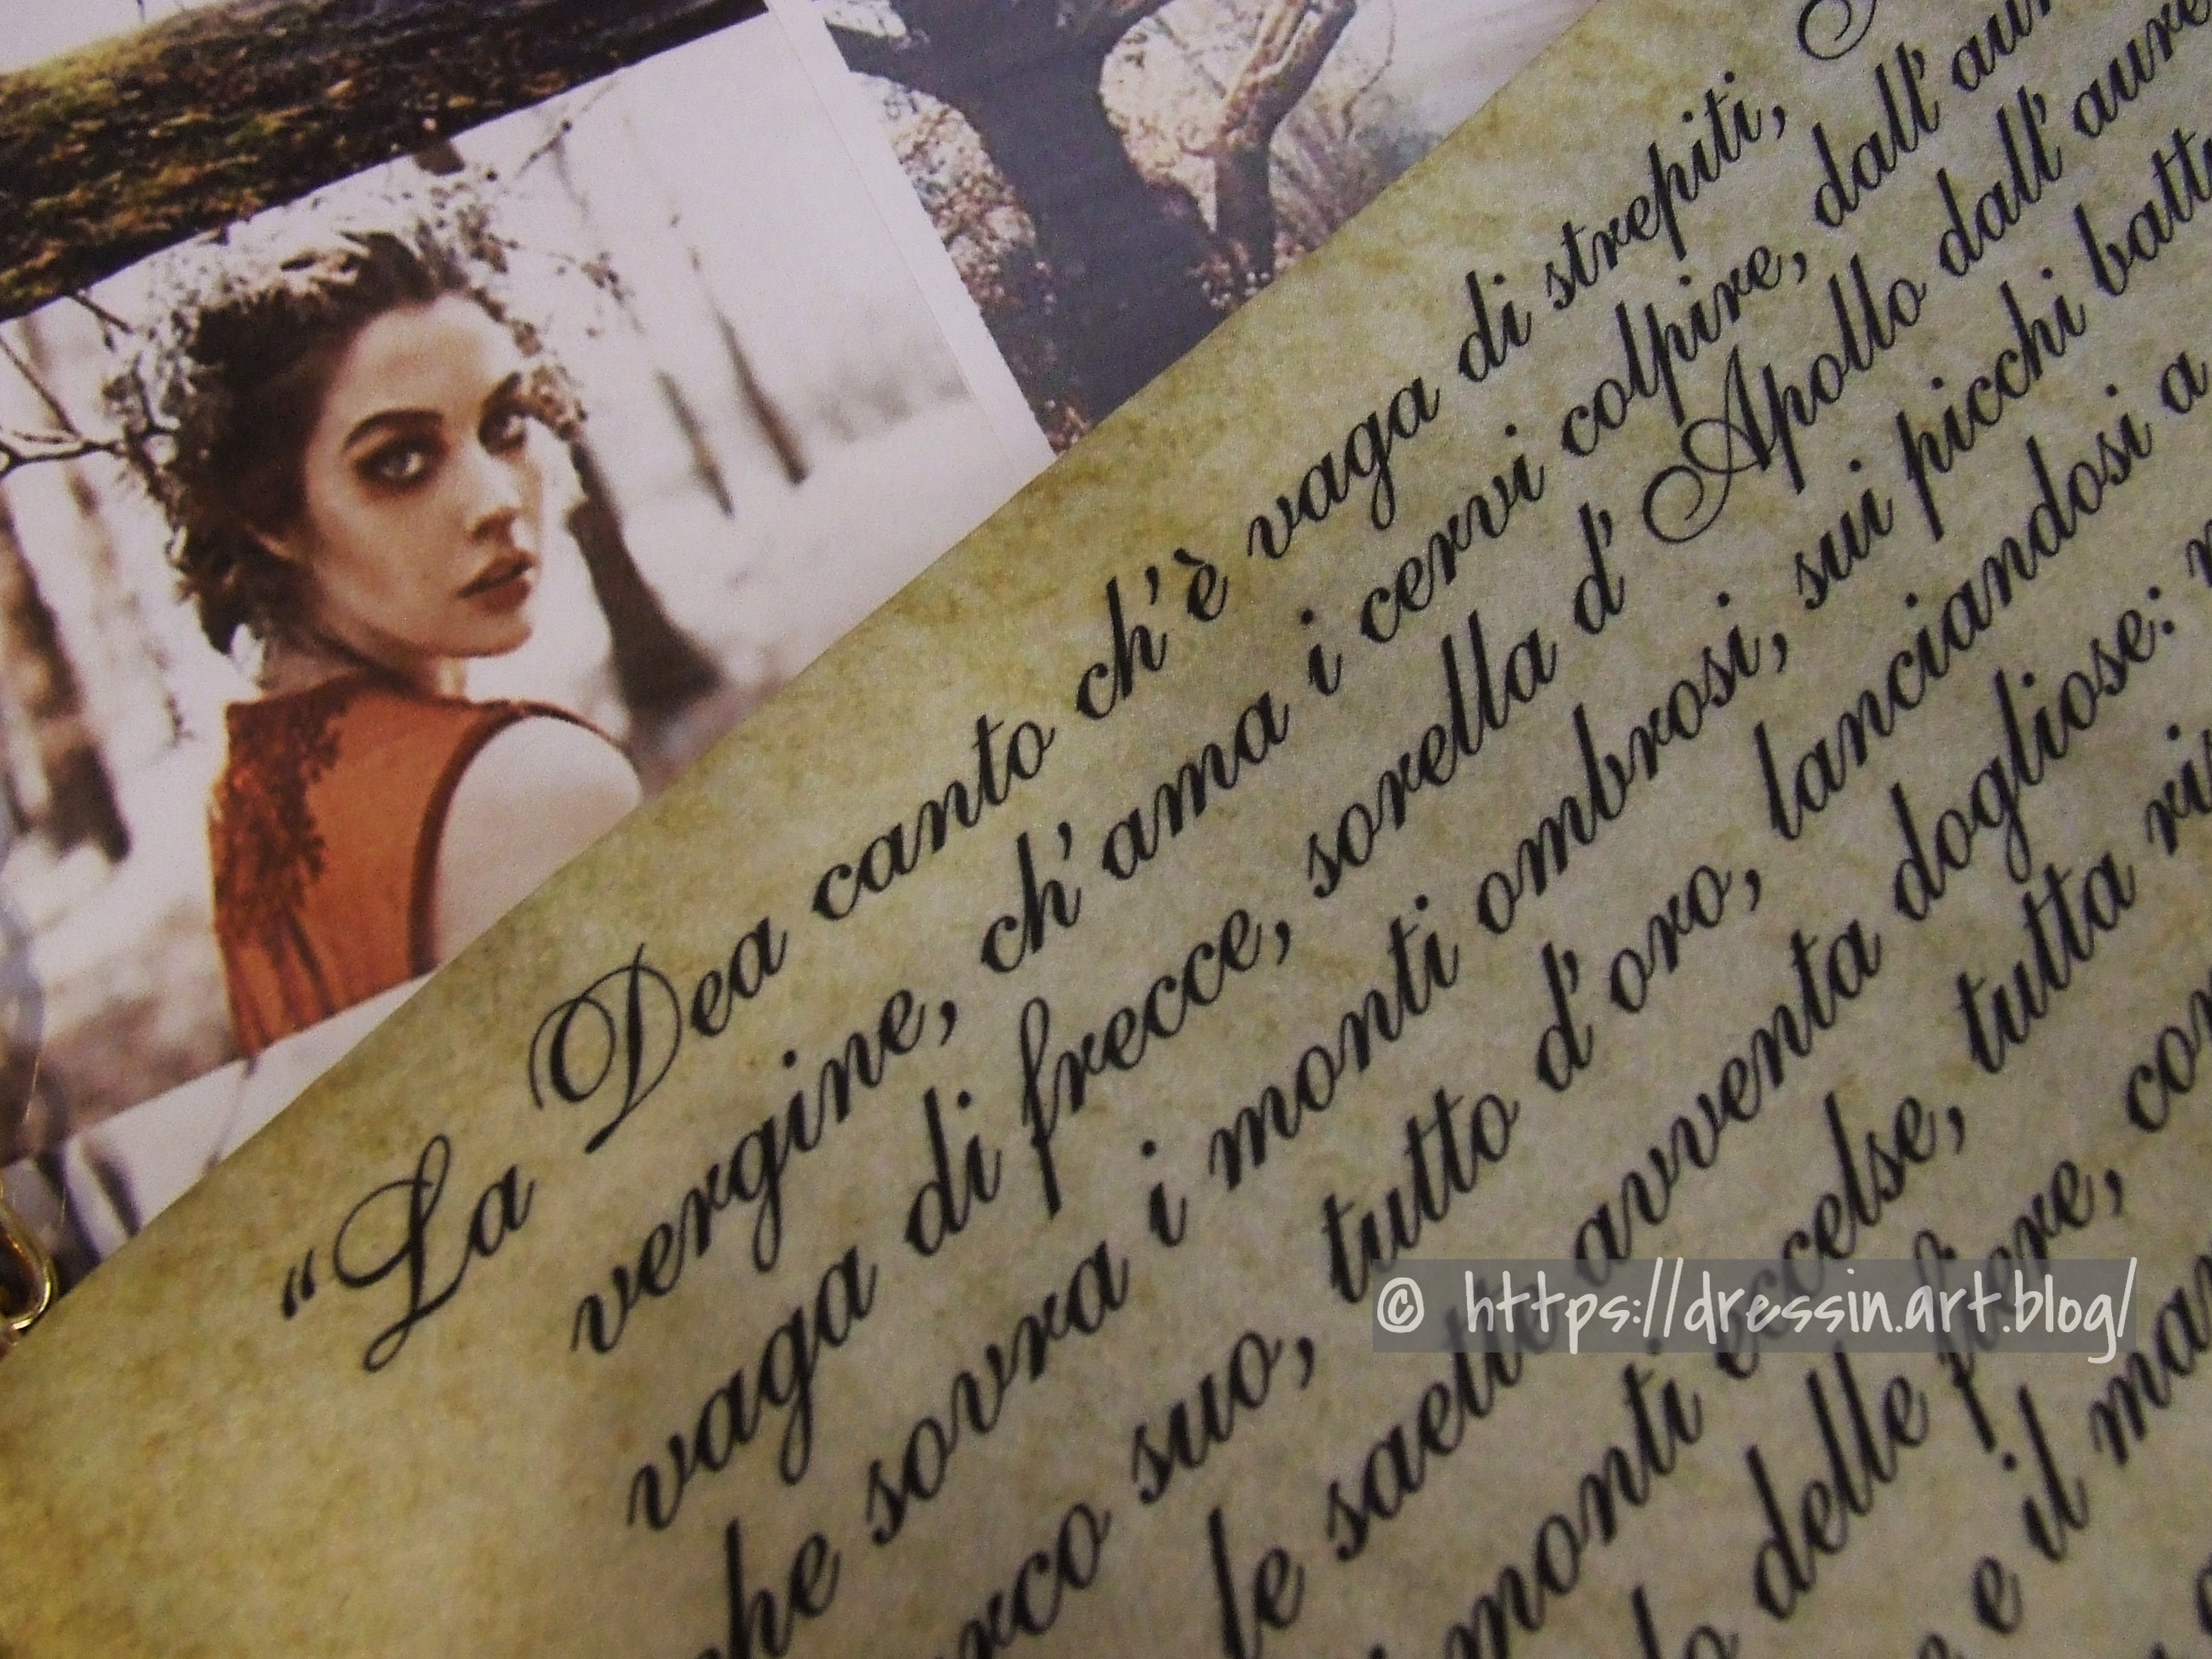 “La Dea canto ch'è vaga di strepiti,
vergine, ch'ama i cervi colpire, dall'
vaga di frecce, sorella d'Apollo dall'
che sovra i monti ombrosi, sui picchi
suo, tutto d'oro, lanciandosi a
le saette avventa dogliose:
monti eccelse, tutta
delle fiere,
e il
© https://dressin.art.blog/